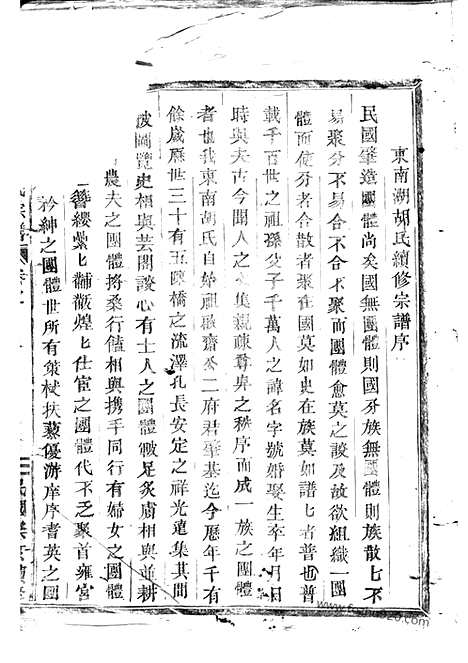 東南湖胡氏續修宗譜序
民國肇造團體尚矣國無團體則國分族無團體則族散匕不
易聚分不易合不合不聚而團體愈莫之談及故欲組織一團
體而使分者合散者聚在國莫如史在族莫如譜匕者普也普
載千百世之祖孫父子千萬人之諱名字號婚娶生卒年月日
時與夫古今聞人之文集親疎尊卑之秩序而成一族之團體
者也我東南胡氏自始祖融齋公二府君肇基迄今歷年千有
餘歲歷世三十有五陳橋之流澤孔長安定之祥光遠集其間
披圖覽史相與芸閣談心有士人之團體戴星炙膚相與並耕
農夫之團體將桑行饁相與携手同行有婦女之團體
簪纓纍匕黼黻煌匕仕宦之團體代不乏聚首雍宮
衿紳之團體世所有策杖扶藜優游庠序耆英之團